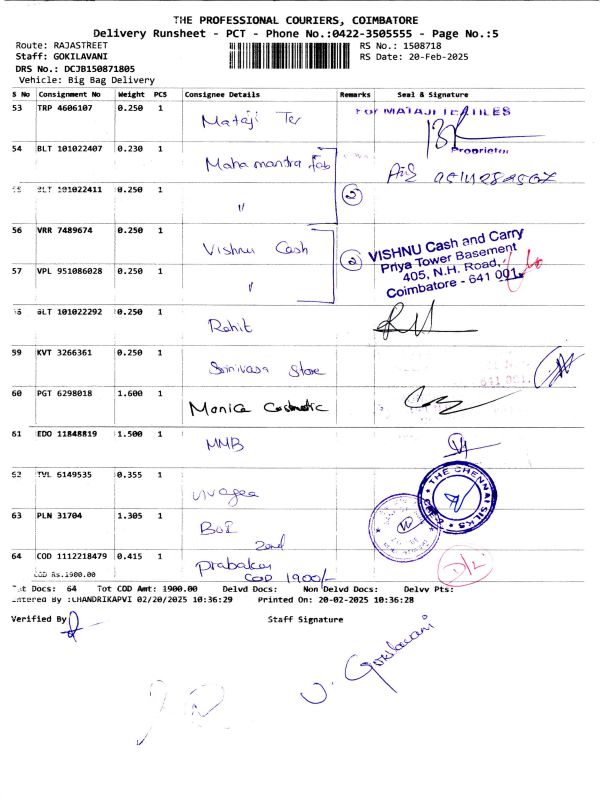 THE PROFESSIONAL COURIERS, COIMBATORE
Delivery Runsheet - PCT - Phone No.:0422-3505555 - Page No.:5
Route: RAJASTREET RS No.: 1508718
Staff: GOKILAVANI RS Date: 20-Feb-2025
DRS No.: DCJB150871805
Vehicle: Big Bag Delivery
S No Consignment No Weight PCS Consignee Details Remarks Seal & Signature
53 TRP 4606107 0.250 1 Mataji Tex For MATAJI TEXTILES
Proprietor
54 BLT 101022407 0.230 1 Maha mantra fab
BLT 101022411 0.250 1 " 2
56 VRR 7489674 0.250 1 Vishnu Cash 2 VISHNU Cash and Carry
Priya Tower Basement
57 VPL 951086028 0.250 1 " 405, N.H. Road,
Coimbatore - 641 001.
BLT 101022292 0.250 1 Rohit
59 KVT 3266361 0.250 1 Srinivasa Store 641 001.
60 PGT 6298018 1.600 1 Monica Cosmetic
61 EDO 11848819 1.500 1 MMB
62 TVL 6149535 0.355 1 THE CHENNAI SILKS
63 PLN 31704 1.305 1 BOI
2nd
64 COD 1112218479 0.415 1 Prabakar
COD Rs.1900.00 COD 1900/-
Tot Docs: 64 Tot COD Amt: 1900.00 Delvd Docs: Non Delvd Docs: Delvv Pts:
Entered By :CHANDRIKAPVI 02/20/2025 10:36:29 Printed On: 20-02-2025 10:36:28
Verified By Staff Signature
U. Gokilavani